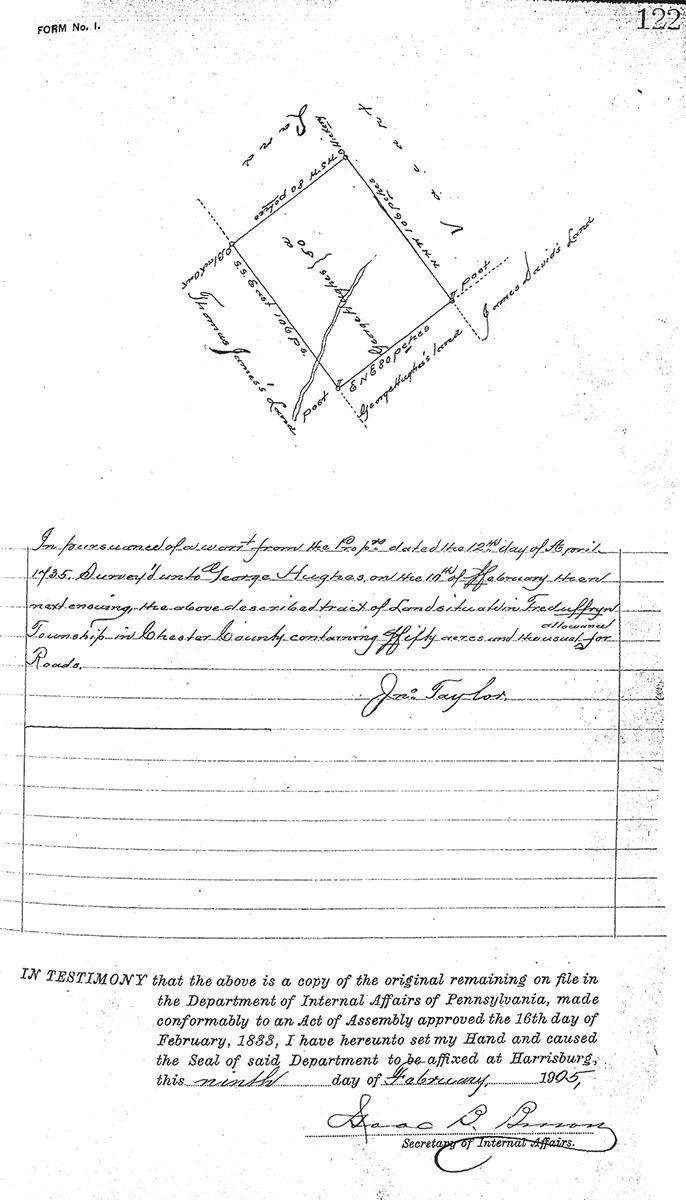 FORM No. 1.
122
Vacant
Land
Hickory
W S W 80 pches
N N W 106 pches
Black Oak
S.S. East 106 ps.
Thomas James's Land
George Hughes 50 a
Post
James David's Land
E N E 80 pches
George Hughes's land
Post
In pursuance of a warrt from the Propts dated the 12th day of April
1735. Survey'd unto George Hughes, on the 10th of ffebruary then
next ensuing, the above described tract of Land situate in Treduffryn
Township in Chester County containing ffifty acres and the usual allowance for
Roads.
Jno. Taylor.
IN TESTIMONY that the above is a copy of the original remaining on file in
the Department of Internal Affairs of Pennsylvania, made
conformably to an Act of Assembly approved the 16th day of
February, 1833, I have hereunto set my Hand and caused
the Seal of said Department to be affixed at Harrisburg,
this ninth day of February, 1905,
Isaac B. Brown
Secretary of Internal Affairs.